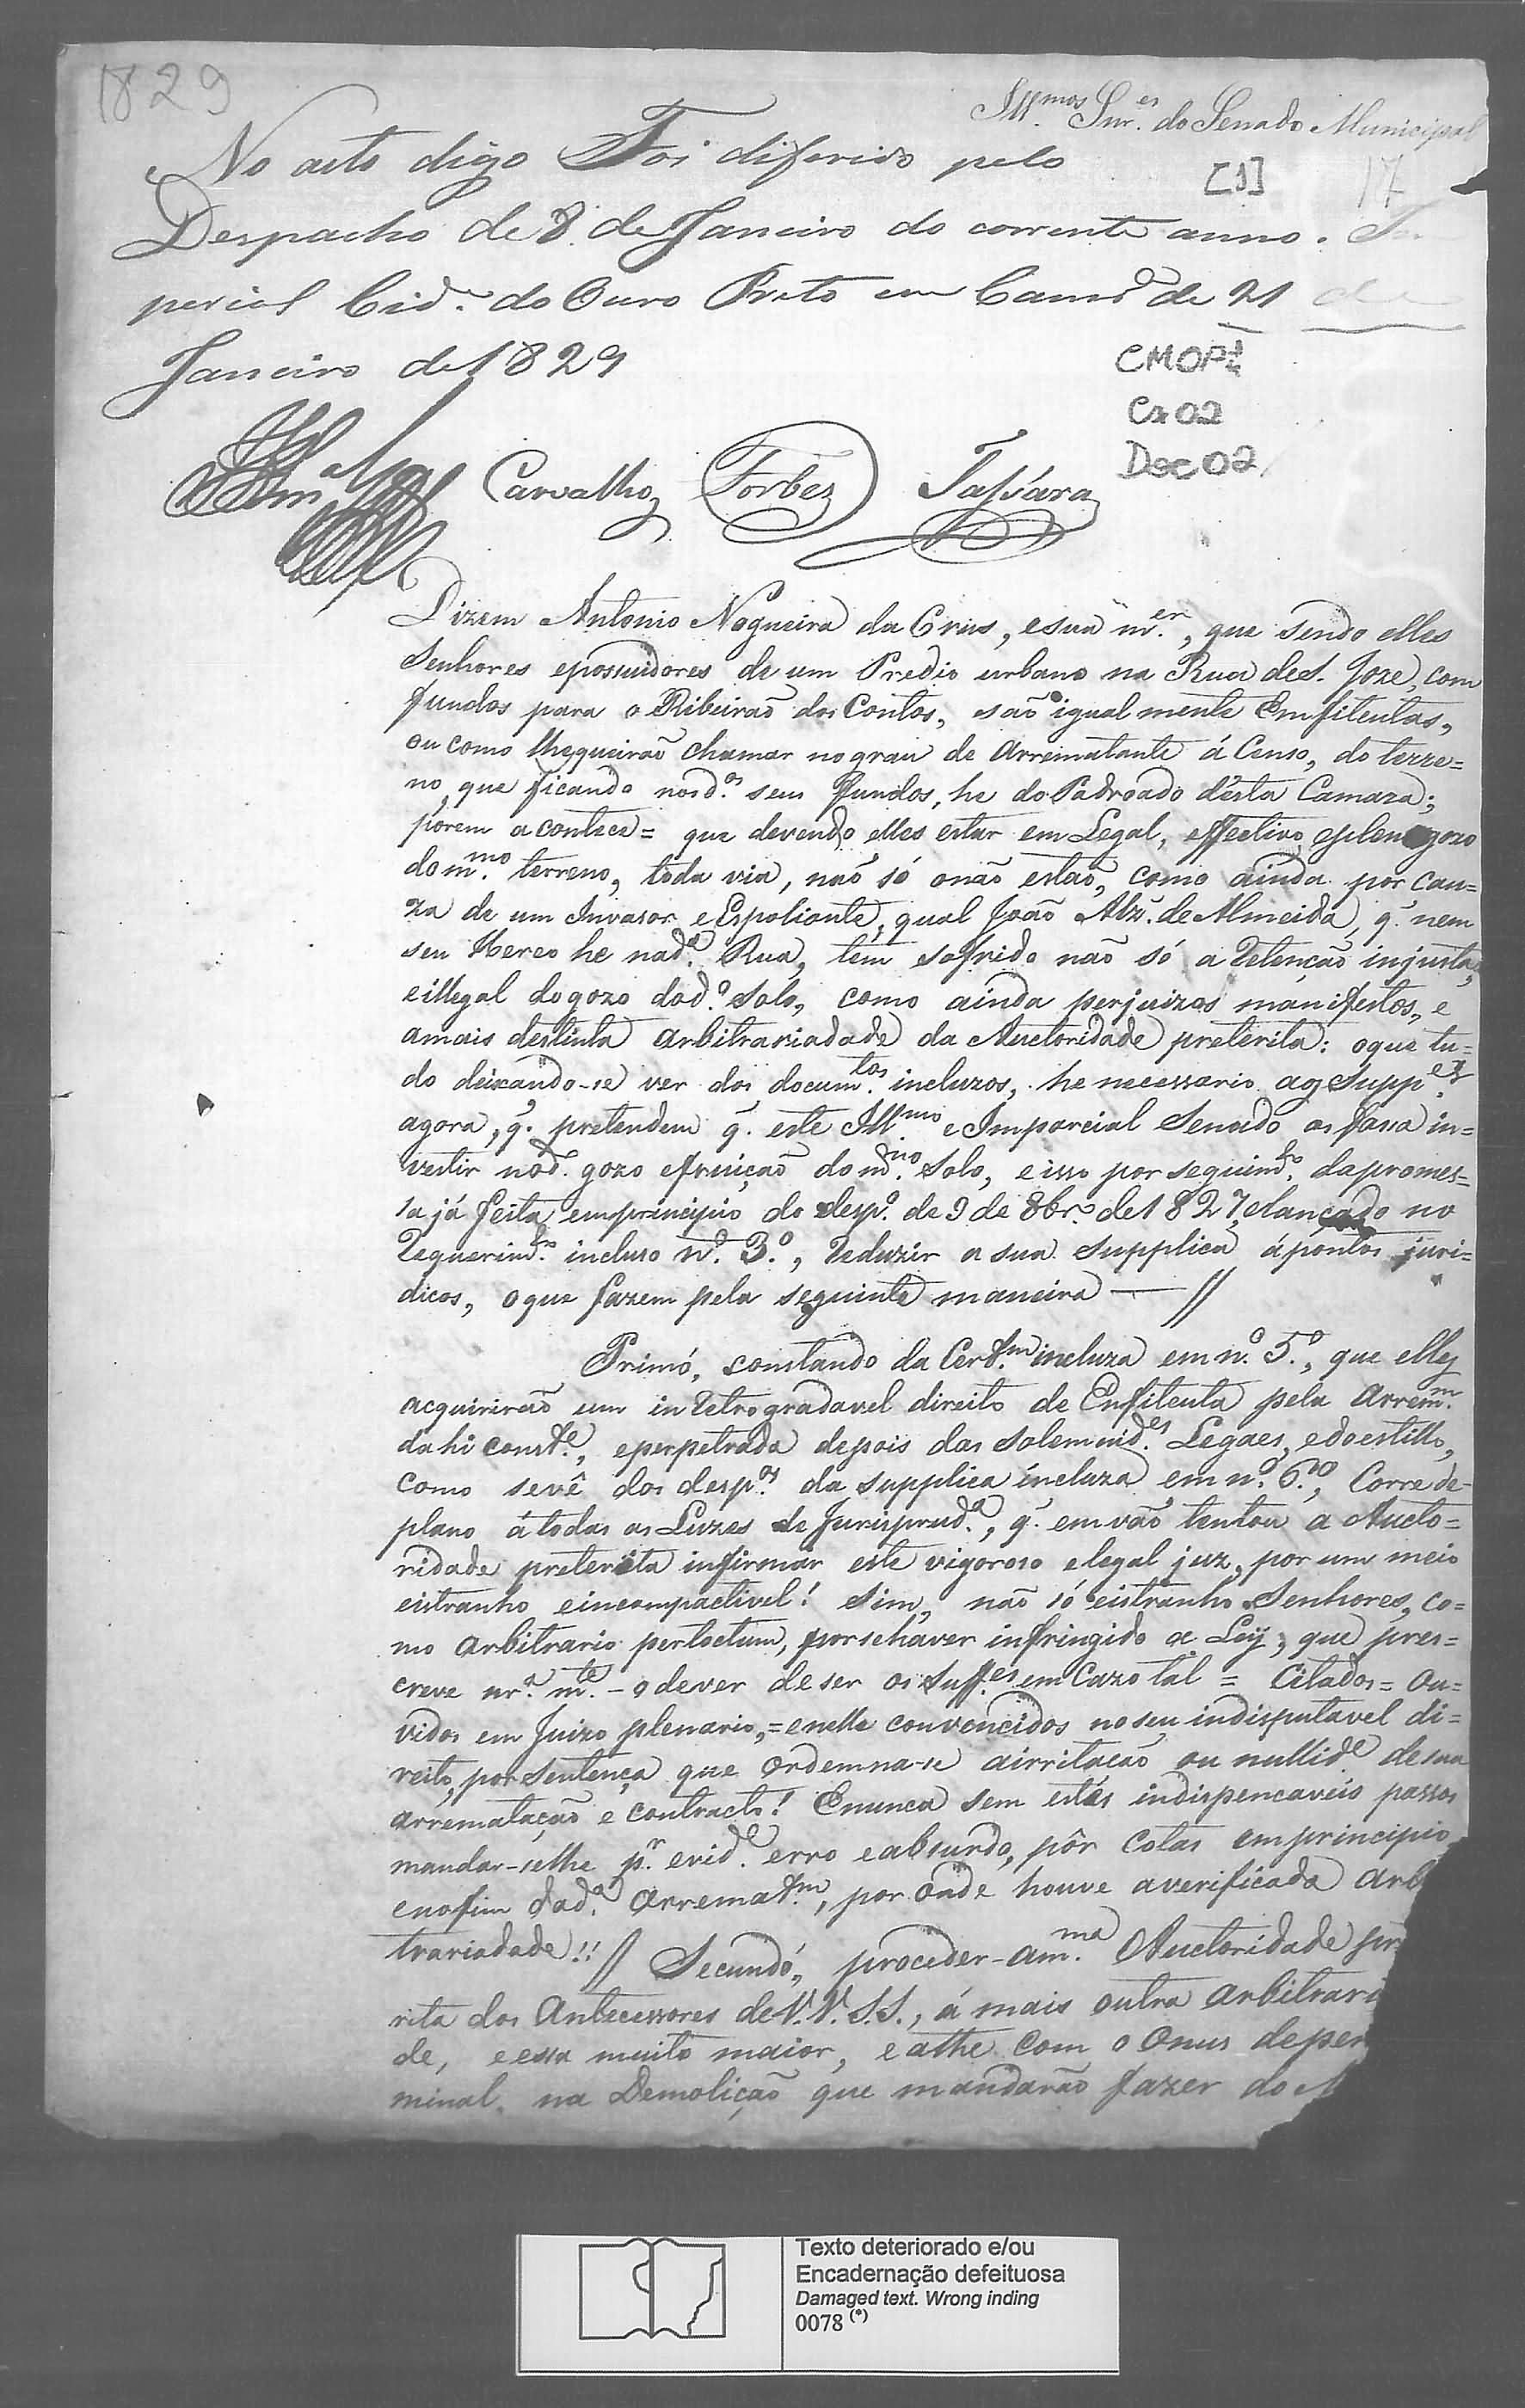 1829
Ill.mos Snr.es do Senado Municipal
No acto digo Foi diferido pelo
[1]
17
Despacho de 8 de Janeiro do corrente anno. Im
perial Cid.e do Ouro Preto em Camr.a de 21 de
Janeiro de 1829
CMOP
Cx 02
Doc 02
Carvalho Forbes Tassara
Dizem Antonio Nogueira da Crus, e sua m.er, que sendo elles
Senhores epossuidores de um Predio urbano na Rua de S. Joze, com
fundos para o Ribeirão dos Contos, esão igualmente Emfiteutas,
ou como lhequeirão chamar no grau de Arrematante á Censo, do terre=
no, que ficando nosd.os seus fundos, he do Padroado d'esta Camara;
porem acontece= que devendo elles estar em Legal, effectivo, eplenogozo
dom.mo terreno, toda via, não só onão estão, como ainda por cau=
za de um Invasor, e Espoliante, qual João Alz.' de Almeida, q.' nem
seu Hereo he nad.a Rua, tem sofrido não só a Retenção injusta,
eillegal dogozo dod.o Solo, como ainda perjuizos manifestos, e
amais destinta arbitrariadade da Auctoridade preterita: oque tu=
do deixando-se ver dos docum.tos incluzos, he necessario aos Supp.es
agora, q.' pretendem q.' este Ill.mo e Imparcial Senado os fassa in=
vestir nod.o gozo efruição do m.mo Solo, e isso por seguim.to dapromes=
sa já feita emprincipio do desp.o de 9 de 8br.o de 1827, elançado no
Requerim.to incluso N.o 3.o, Reduzir a sua Supplica ápontos juri=
dicos, oque fazem pela seguinte maneira — //
Primó, constando da Cert.m incluza em n.o 5.o, que elles
acquirirão um inRetrogradavel direito de Enfiteuta pela Arrem.m
dahi const.e, eperpetrada depois das solemnid.es Legaes, edoestillo,
como sevê dos desp.os da supplica incluza em n.o 6.to, Corre de-
plano átodas as Luzes de Jurisprud.a, q.' emvão tentou a Aucto=
ridade preterita infirmar este vigoroso elegal juz, por um meio
eistranho eincompactivel! Sim, não só eistranho Senhores, co=
mo arbitrario pertoctum, porsehaver infringido a Ley, que pres=
creve nr.a m.te - odever deser os Supp.es em Cazo tal = Citados = Ou=
vidos em Juizo plenario, = enelle convencidos noseu indisputavel di=
reito, por Sentença que Ordemna-se airritação ou nullid.e desua
arrematação e contracto! Enunca sem estes indispencaveis passos
mandar-selhe p.r evid.e erro eabsurdo, pôr Cotas emprincipio
enofim dad.a Arremat.m, por onde houve averificada Arb
trariadade!! // Secundó, proceder-am.ma Auctoridade pr
rita dos Antecessores de V.V.S.S., á mais outra Arbitrari
de, eessa muito maior, eathe com o Onus deper
minal na Demolição que mandarão fazer do M
Texto deteriorado e/ou
Encadernação defeituosa
Damaged text. Wrong inding
0078 (*)